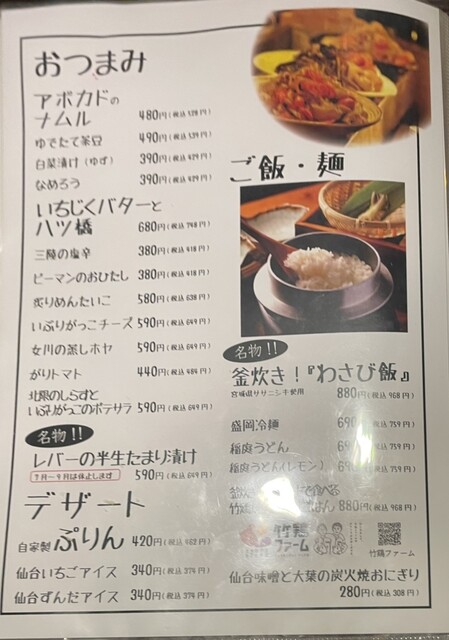 おつまみ
アボカドの
ナムル 480円(税込528円)
ゆでたて茶豆 490円(税込539円)
白菜漬け(ゆず) 390円(税込429円)
なめろう 390円(税込429円)
いちじくバターと
八ツ橋 680円(税込748円)
三陸の塩辛 380円(税込418円)
ピーマンのおひたし 380円(税込418円)
炙りめんたいこ 580円(税込638円)
いぶりがっこチーズ 590円(税込649円)
女川の蒸しホヤ 590円(税込649円)
がりトマト 440円(税込484円)
北限のしらすと
いぶりがっこのポテサラ 590円(税込649円)
名物!!
レバーの半生たまり漬け
7月~9月は休止します 590円(税込649円)
デザート
自家製 ぷりん 420円(税込462円)
仙台いちごアイス 340円(税込374円)
仙台ずんだアイス 340円(税込374円)
ご飯・麺
名物!!
釜炊き!『わさび飯』
宮城県ササニシキ使用 880円(税込968円)
盛岡冷麺 (税込759円)
稲庭うどん (税込759円)
稲庭うどん(レモン) (税込759円)
食べる
880円(税込968円)
竹鶏
ファーム
竹鶏ファーム
仙台味噌と大葉の炭火焼おにぎり
280円(税込308円)